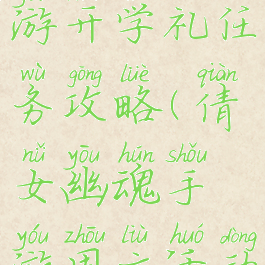 游开学礼任
wù gōng lüè qiàn
务攻略(倩
nǚ yōu hún shǒu
女幽魂手
yóu zhōu liù huó dòng
游周六活动